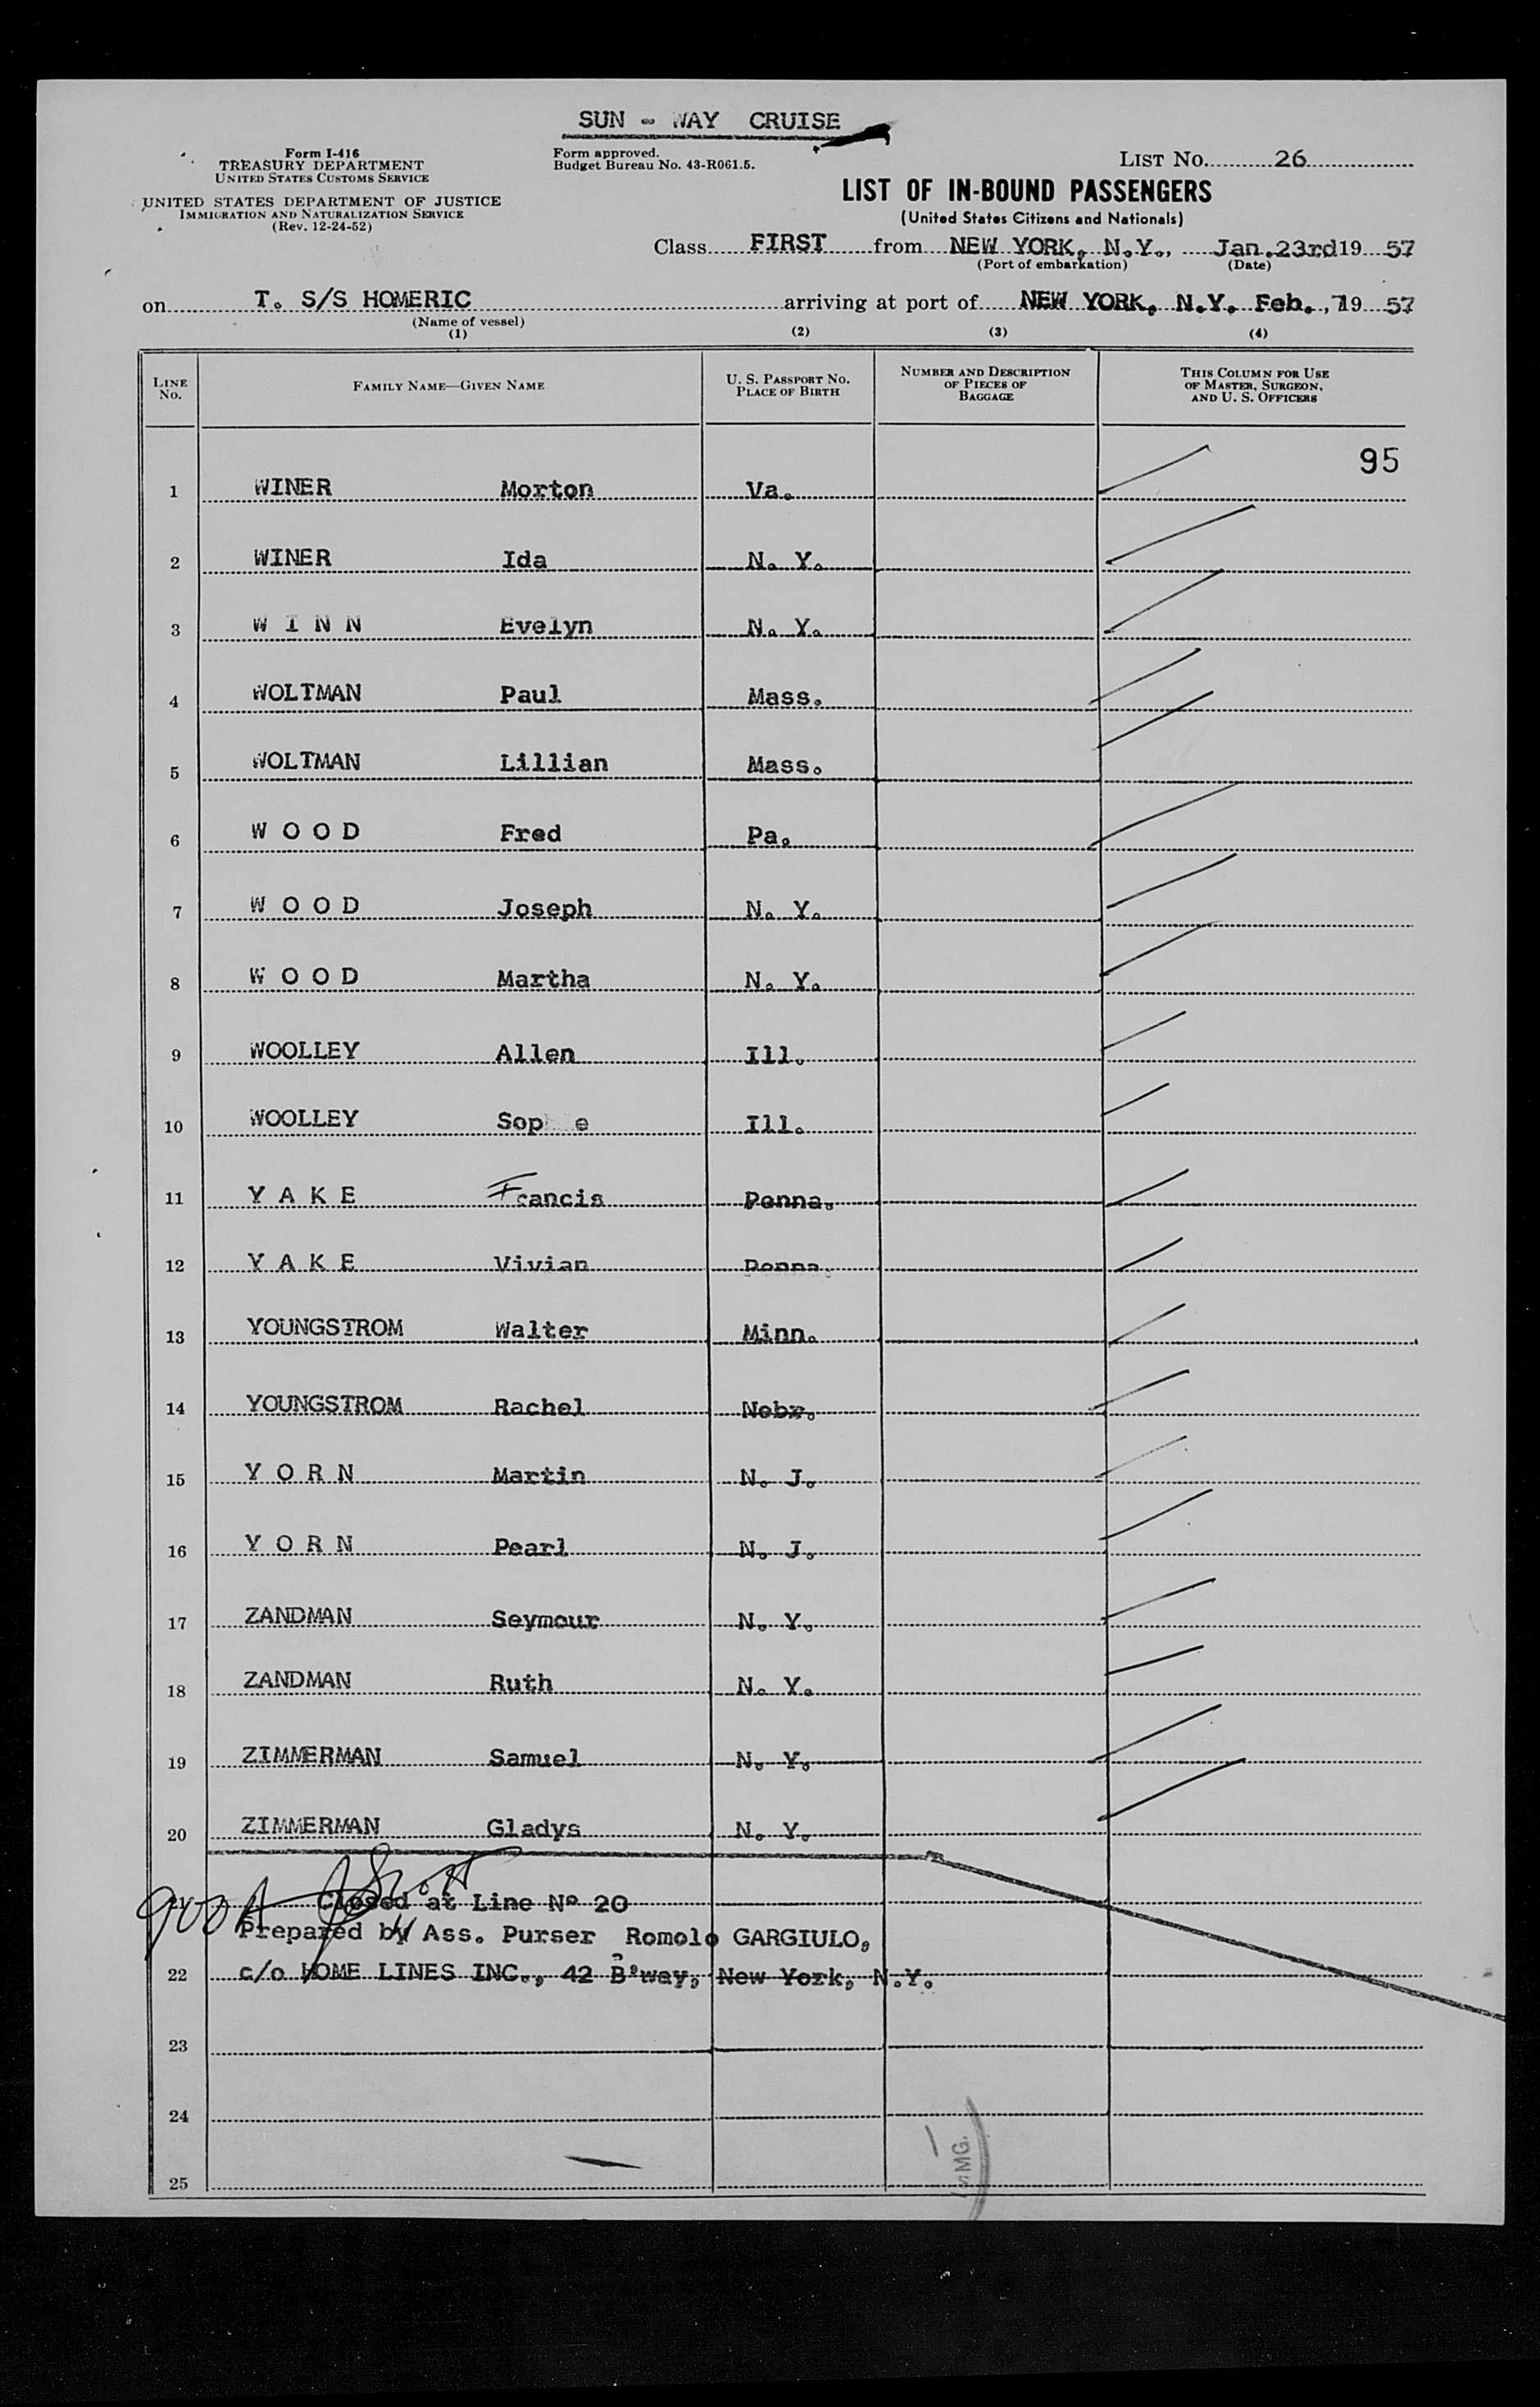 SUN - WAY CRUISE
Form I-416
TREASURY DEPARTMENT
UNITED STATES CUSTOMS SERVICE
UNITED STATES DEPARTMENT OF JUSTICE
IMMIGRATION AND NATURALIZATION SERVICE
(Rev. 12-24-52)
Form approved.
Budget Bureau No. 43-R061.5.
LIST NO. 26
LIST OF IN-BOUND PASSENGERS
(United States Citizens and Nationals)
Class FIRST from NEW YORK, N.Y., Jan.23rd 19 57
(Port of embarkation) (Date)
on T. S/S HOMERIC arriving at port of NEW YORK, N.Y. Feb. ,7 19 57
(Name of vessel)
(1) (2) (3) (4)
LINE NO. FAMILY NAME—GIVEN NAME U. S. PASSPORT NO. PLACE OF BIRTH NUMBER AND DESCRIPTION OF PIECES OF BAGGAGE THIS COLUMN FOR USE OF MASTER, SURGEON, AND U. S. OFFICERS
95
1 WINER Morton Va.
2 WINER Ida N. Y.
3 W I N N Evelyn N. Y.
4 WOLTMAN Paul Mass.
5 WOLTMAN Lillian Mass.
6 W O O D Fred Pa.
7 W O O D Joseph N. Y.
8 W O O D Martha N. Y.
9 WOOLLEY Allen Ill.
10 WOOLLEY Sop e Ill.
11 Y A K E Francis Penna.
12 Y A K E Vivian Penna.
13 YOUNGSTROM Walter Minn.
14 YOUNGSTROM Rachel Nebr.
15 Y O R N Martin N. J.
16 Y O R N Pearl N. J.
17 ZANDMAN Seymour N. Y.
18 ZANDMAN Ruth N. Y.
19 ZIMMERMAN Samuel N. Y.
20 ZIMMERMAN Gladys N. Y.
Closed at Line Nº 20
Prepared by Ass. Purser Romolo GARGIULO,
22 c/o HOME LINES INC., 42 B'way, New York, N.Y.
23
24
25